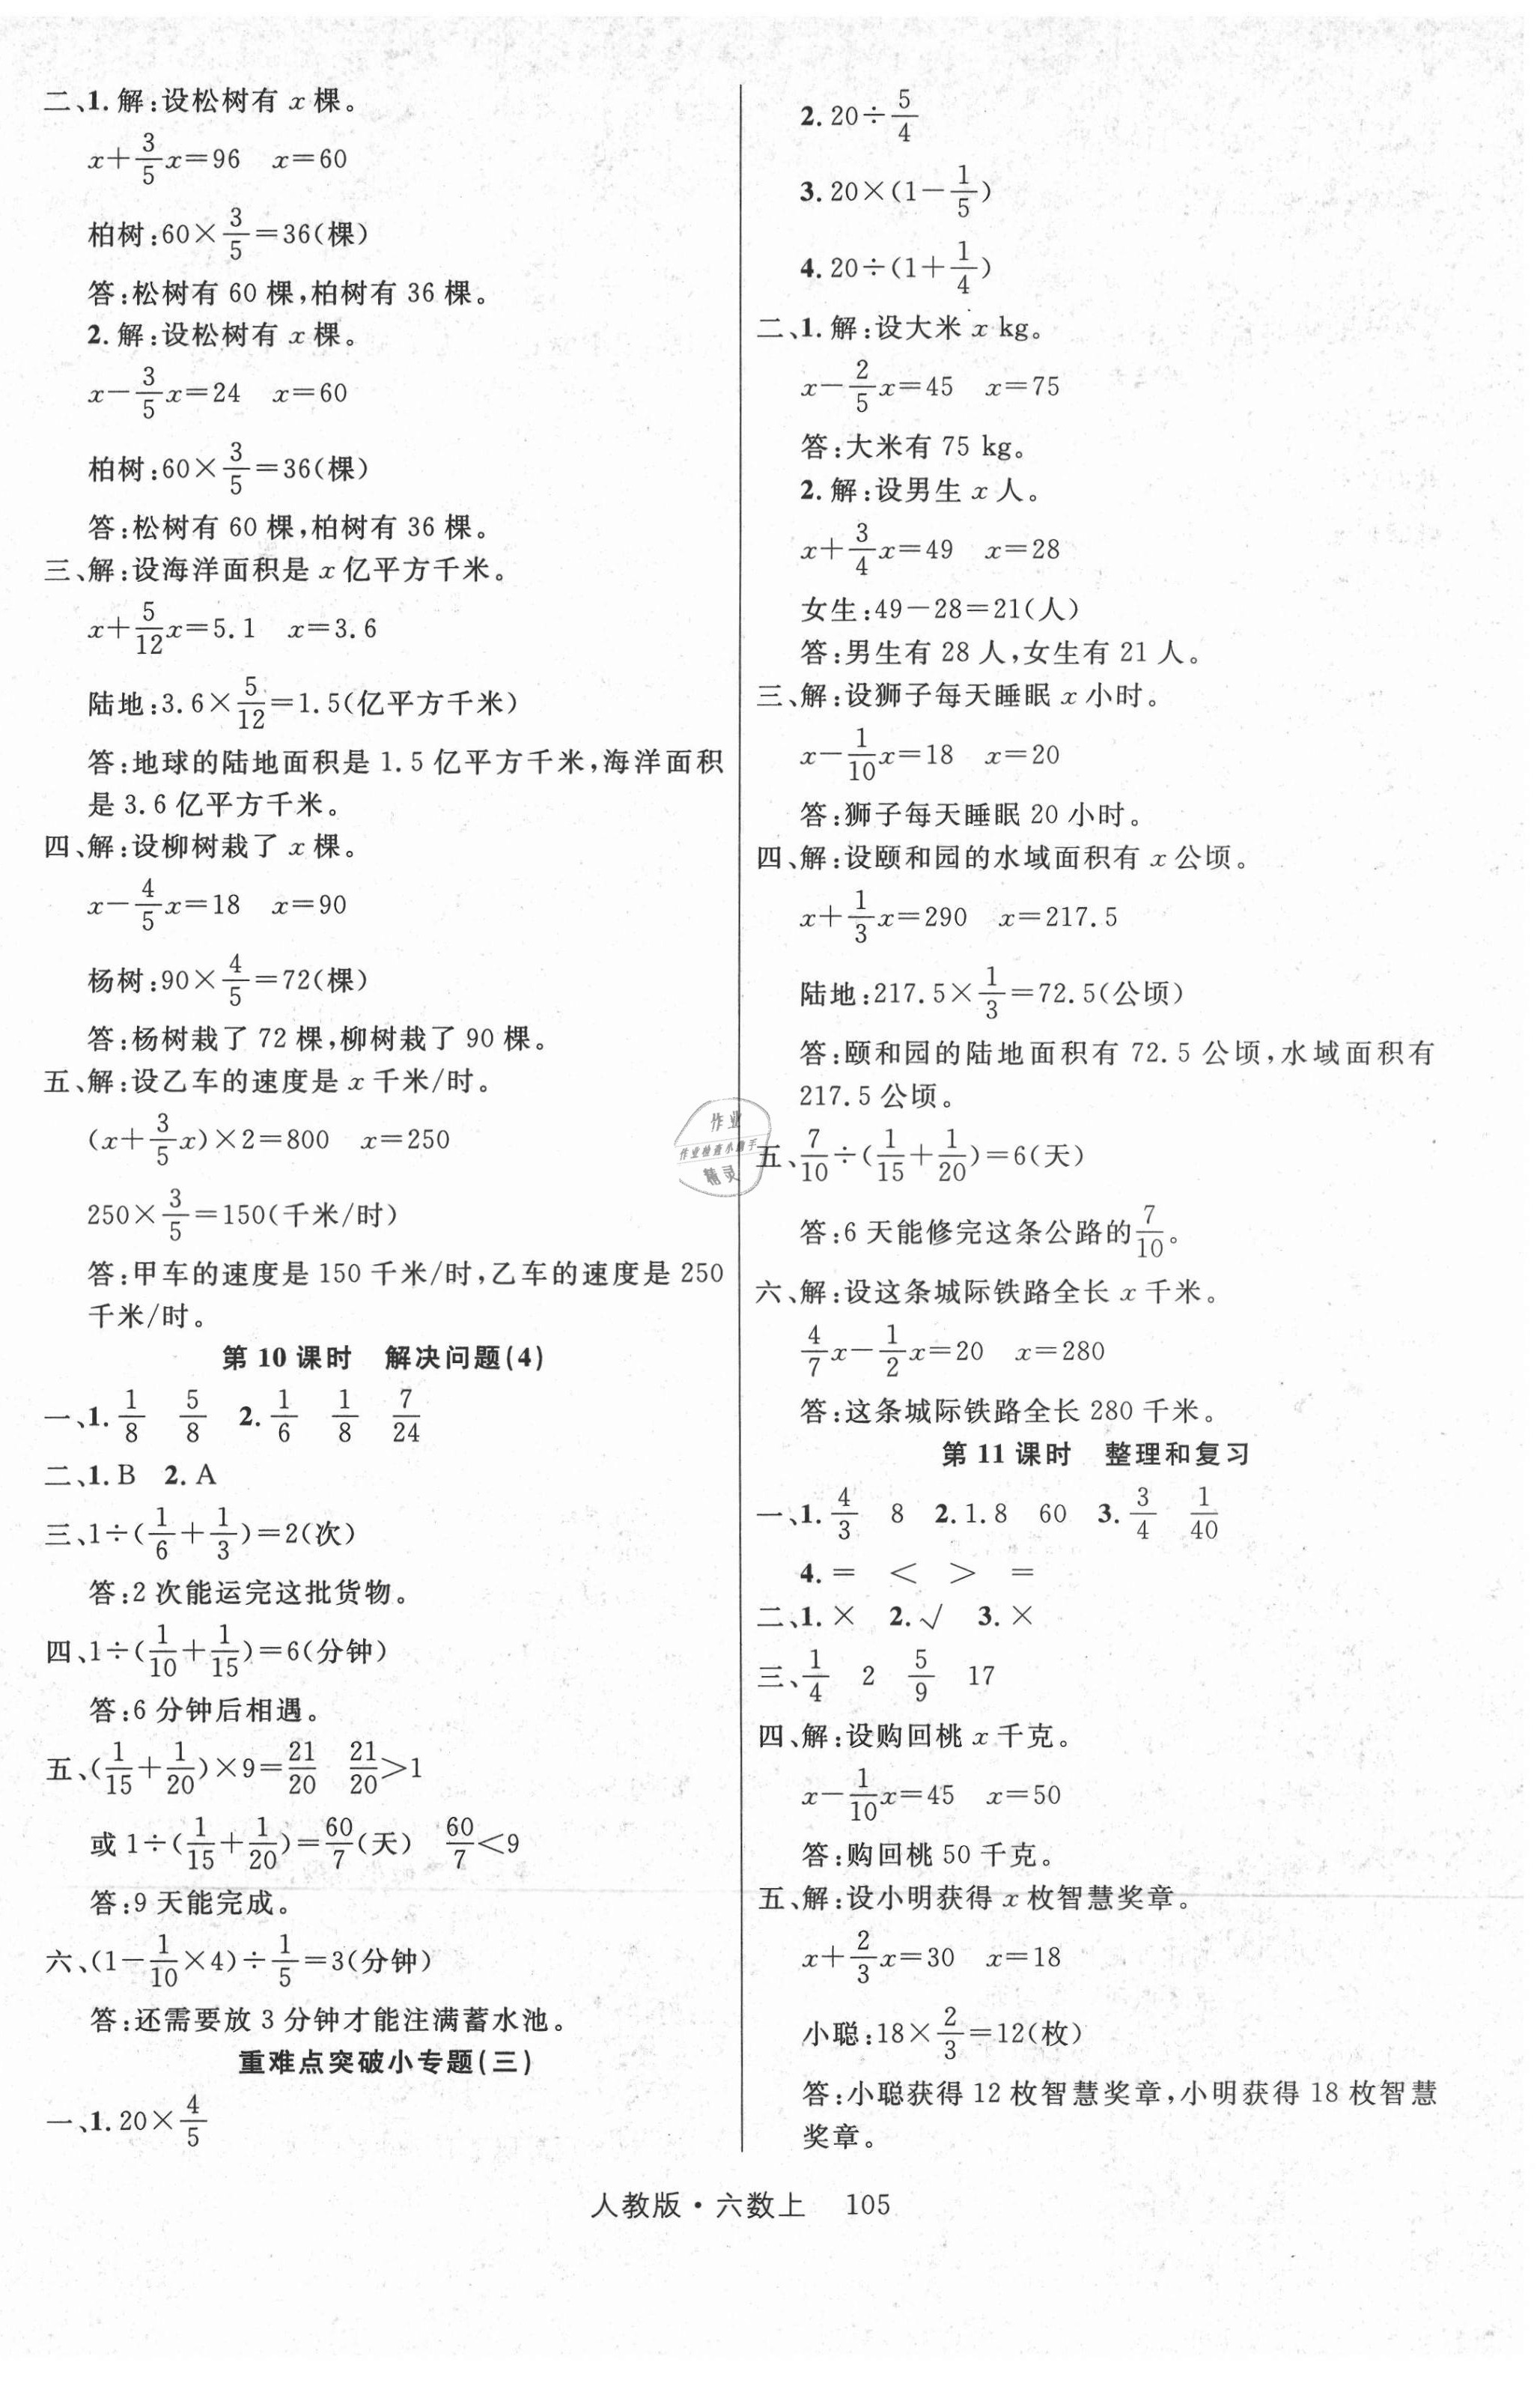 二、1. 解:设松树有 x 棵。
x+3/5x=96 x=60
柏树:60×3/5=36(棵)
答:松树有 60 棵,柏树有 36 棵。
2. 解:设松树有 x 棵。
x-3/5x=24 x=60
柏树:60×3/5=36(棵)
答:松树有 60 棵,柏树有 36 棵。
三、解:设海洋面积是 x 亿平方千米。
x+5/12x=5.1 x=3.6
陆地:3.6×5/12=1.5(亿平方千米)
答:地球的陆地面积是 1.5 亿平方千米,海洋面积
是 3.6 亿平方千米。
四、解:设柳树栽了 x 棵。
x-4/5x=18 x=90
杨树:90×4/5=72(棵)
答:杨树栽了 72 棵,柳树栽了 90 棵。
五、解:设乙车的速度是 x 千米/时。
(x+3/5x)×2=800 x=250
250×3/5=150(千米/时)
答:甲车的速度是 150 千米/时,乙车的速度是 250
千米/时。
第 10 课时 解决问题(4)
一、1. 1/8 5/8 2. 1/6 1/8 7/24
二、1. B 2. A
三、1÷(1/6+1/3)=2(次)
答:2 次能运完这批货物。
四、1÷(1/10+1/15)=6(分钟)
答:6 分钟后相遇。
五、(1/15+1/20)×9=21/20 21/20>1
或 1÷(1/15+1/20)=60/7(天) 60/7<9
答:9 天能完成。
六、(1-1/10×4)÷1/5=3(分钟)
答:还需要放 3 分钟才能注满蓄水池。
重难点突破小专题(三)
一、1. 20×4/5
2. 20÷5/4
3. 20×(1-1/5)
4. 20÷(1+1/4)
二、1. 解:设大米 x kg。
x-2/5x=45 x=75
答:大米有 75 kg。
2. 解:设男生 x 人。
x+3/4x=49 x=28
女生:49-28=21(人)
答:男生有 28 人,女生有 21 人。
三、解:设狮子每天睡眠 x 小时。
x-1/10x=18 x=20
答:狮子每天睡眠 20 小时。
四、解:设颐和园的水域面积有 x 公顷。
x+1/3x=290 x=217.5
陆地:217.5×1/3=72.5(公顷)
答:颐和园的陆地面积有 72.5 公顷,水域面积有
217.5 公顷。
五、7/10÷(1/15+1/20)=6(天)
答:6 天能修完这条公路的7/10。
六、解:设这条城际铁路全长 x 千米。
4/7x-1/2x=20 x=280
答:这条城际铁路全长 280 千米。
第 11 课时 整理和复习
一、1. 4/3 8 2. 1.8 60 3. 3/4 1/40
4. = < > =
二、1. × 2. √ 3. ×
三、1/4 2 5/9 17
四、解:设购回桃 x 千克。
x-1/10x=45 x=50
答:购回桃 50 千克。
五、解:设小明获得 x 枚智慧奖章。
x+2/3x=30 x=18
小聪:18×2/3=12(枚)
答:小聪获得 12 枚智慧奖章,小明获得 18 枚智慧
奖章。
作业
作业检查小助手
精灵
人教版·六数上 105